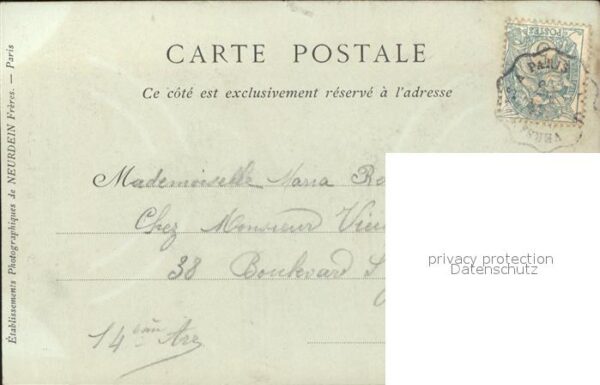 CARTE POSTALE
Ce côté est exclusivement réservé à l'adresse
Établissements Photographiques de NEURDEIN Frères. — Paris
POSTES
A PARIS
VERS
Mademoiselle Maria
Chez Monsieur
38 Boulevard
14
privacy protection
Datenschutz